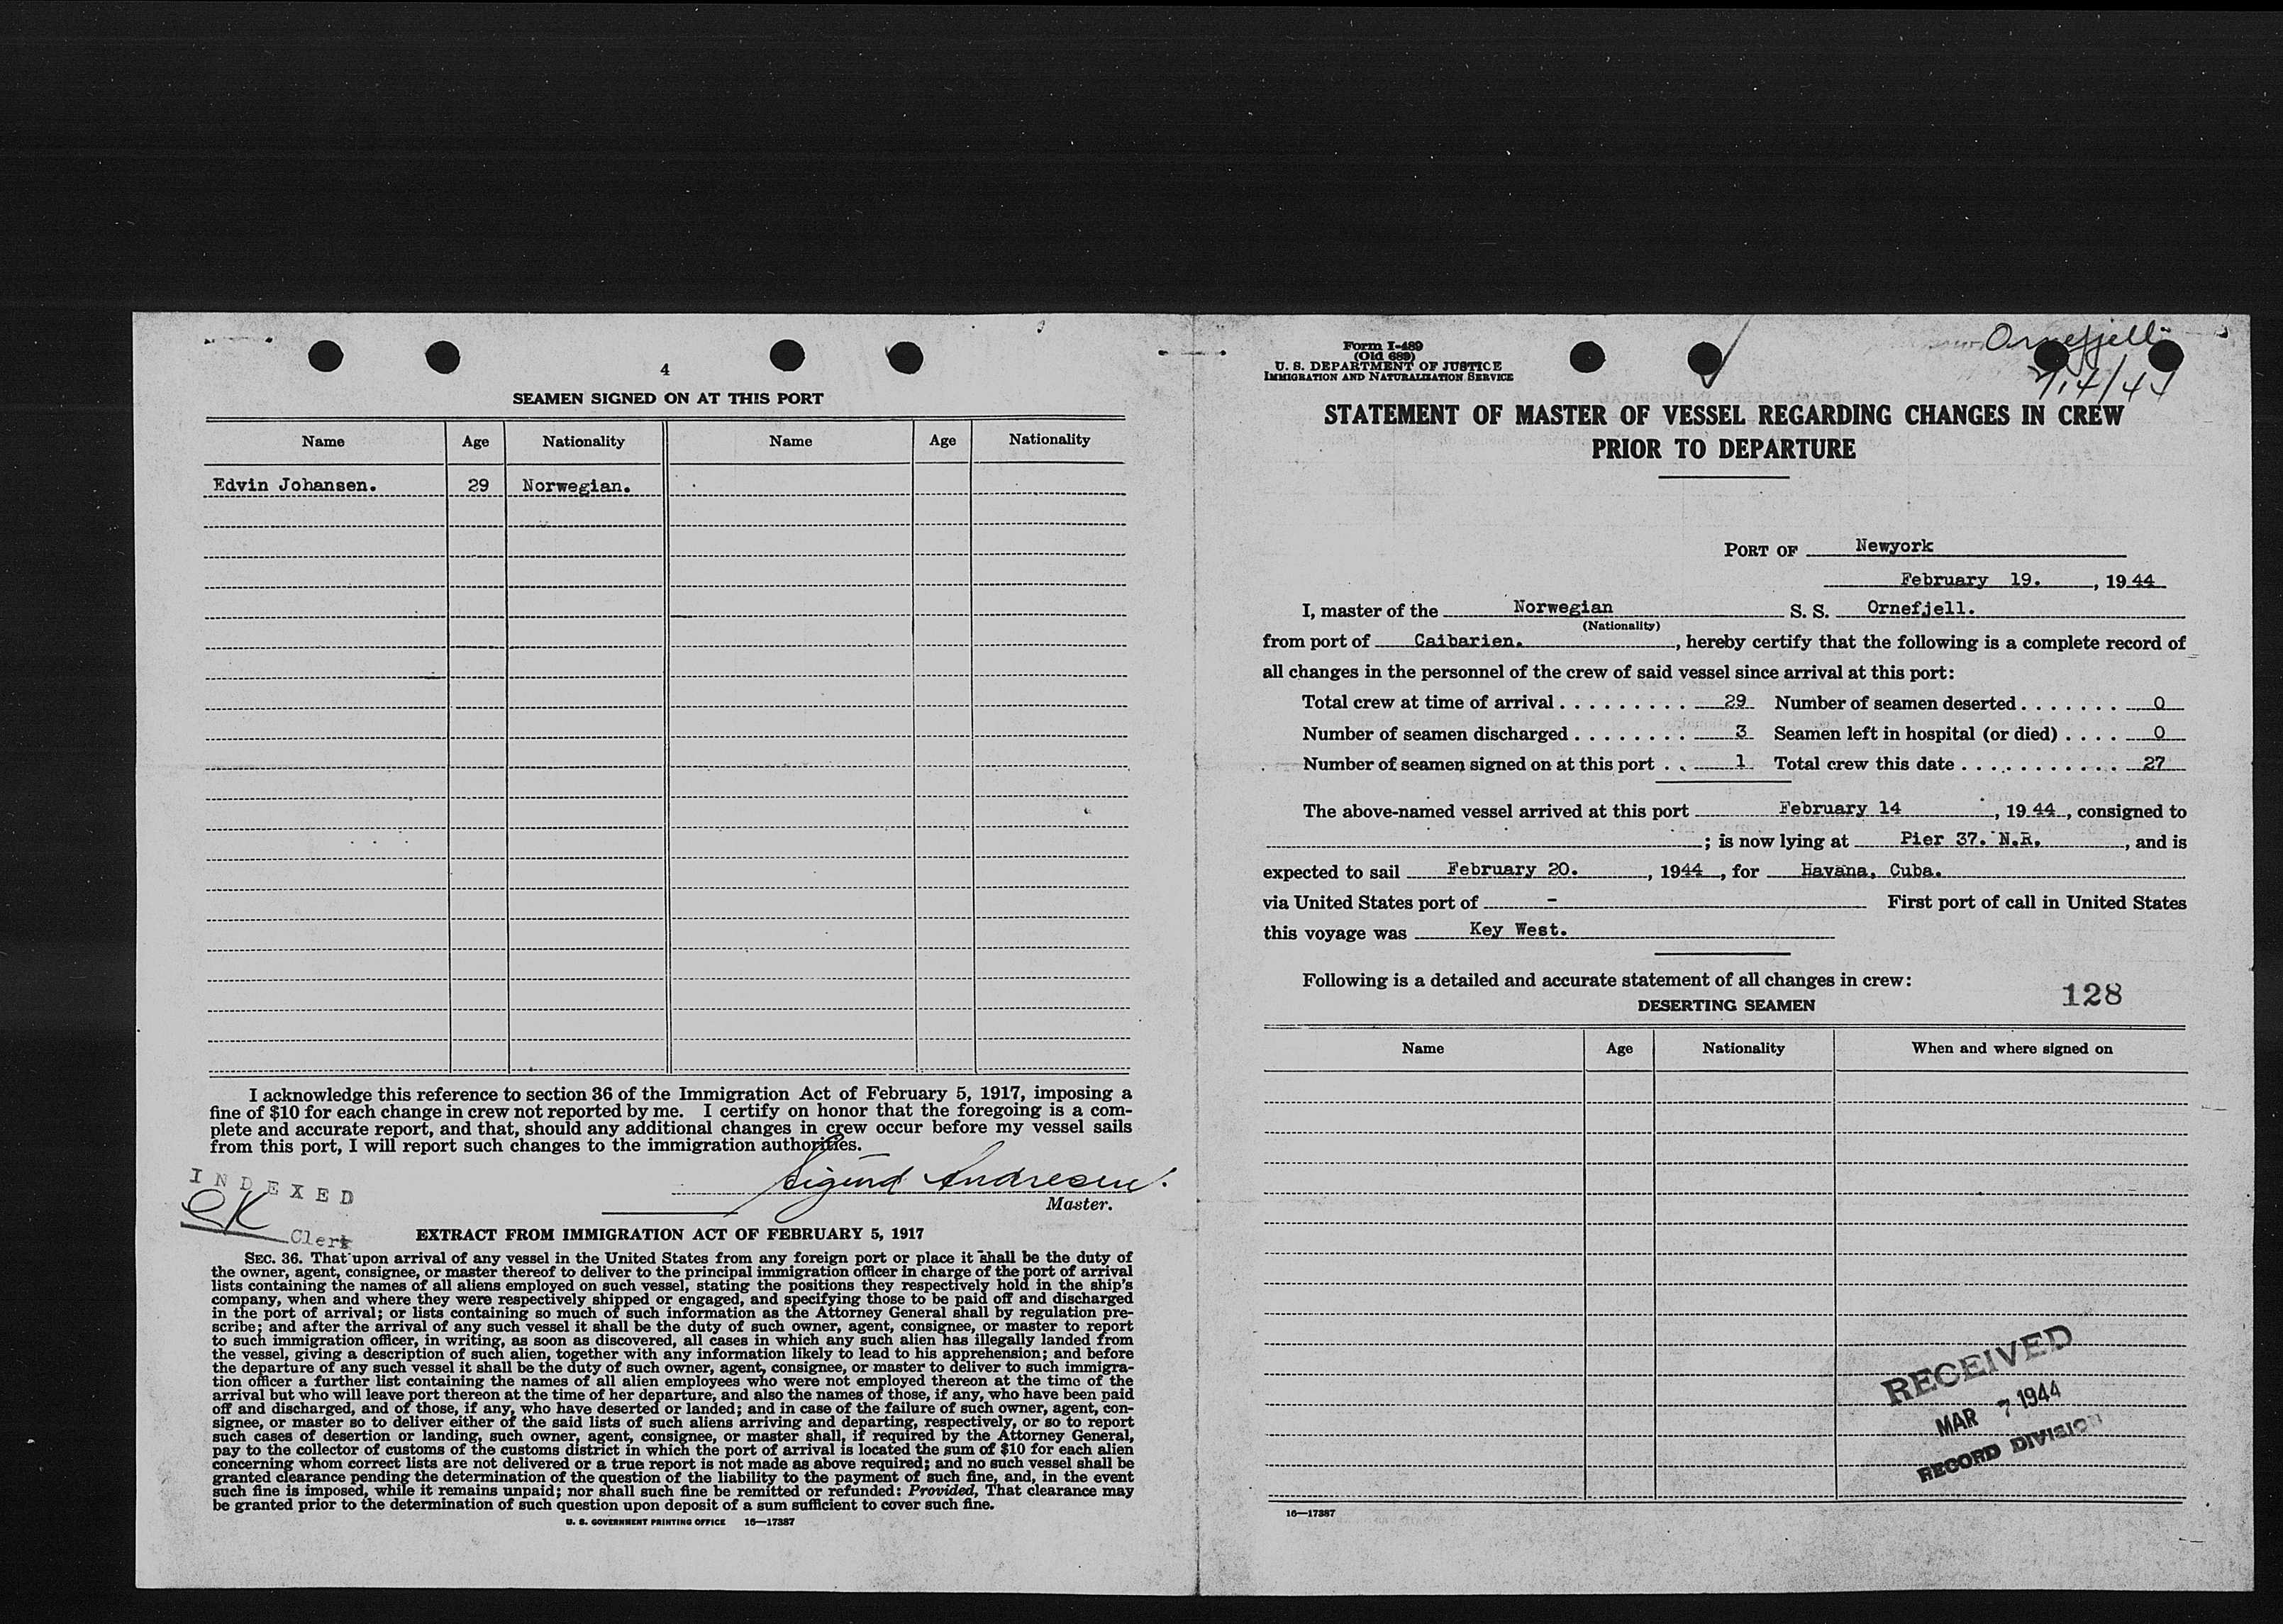 4
SEAMEN SIGNED ON AT THIS PORT
Name Age Nationality Name Age Nationality
Edvin Johansen. 29 Norwegian.
I acknowledge this reference to section 36 of the Immigration Act of February 5, 1917, imposing a
fine of $10 for each change in crew not reported by me. I certify on honor that the foregoing is a com-
plete and accurate report, and that, should any additional changes in crew occur before my vessel sails
from this port, I will report such changes to the immigration authorities.
INDEXED
Sigurd Andresen.
Master.
Clerk
EXTRACT FROM IMMIGRATION ACT OF FEBRUARY 5, 1917
SEC. 36. That upon arrival of any vessel in the United States from any foreign port or place it shall be the duty of
the owner, agent, consignee, or master thereof to deliver to the principal immigration officer in charge of the port of arrival
lists containing the names of all aliens employed on such vessel, stating the positions they respectively hold in the ship's
company, when and where they were respectively shipped or engaged, and specifying those to be paid off and discharged
in the port of arrival; or lists containing so much of such information as the Attorney General shall by regulation pre-
scribe; and after the arrival of any such vessel it shall be the duty of such owner, agent, consignee, or master to report
to such immigration officer, in writing, as soon as discovered, all cases in which any such alien has illegally landed from
the vessel, giving a description of such alien, together with any information likely to lead to his apprehension; and before
the departure of any such vessel it shall be the duty of such owner, agent, consignee, or master to deliver to such immigra-
tion officer a further list containing the names of all alien employees who were not employed thereon at the time of the
arrival but who will leave port thereon at the time of her departure, and also the names of those, if any, who have been paid
off and discharged, and of those, if any, who have deserted or landed; and in case of the failure of such owner, agent, con-
signee, or master so to deliver either of the said lists of such aliens arriving and departing, respectively, or so to report
such cases of desertion or landing, such owner, agent, consignee, or master shall, if required by the Attorney General,
pay to the collector of customs of the customs district in which the port of arrival is located the sum of $10 for each alien
concerning whom correct lists are not delivered or a true report is not made as above required; and no such vessel shall be
granted clearance pending the determination of the question of the liability to the payment of such fine, and, in the event
such fine is imposed, while it remains unpaid; nor shall such fine be remitted or refunded: Provided, That clearance may
be granted prior to the determination of such question upon deposit of a sum sufficient to cover such fine.
U. S. GOVERNMENT PRINTING OFFICE 16—17387
Form I-489
(Old 689)
U. S. DEPARTMENT OF JUSTICE
IMMIGRATION AND NATURALIZATION SERVICE
Ornefjell
STATEMENT OF MASTER OF VESSEL REGARDING CHANGES IN CREW
PRIOR TO DEPARTURE
PORT OF Newyork
February 19. , 19 44
I, master of the Norwegian S. S. Ornefjell.
(Nationality)
from port of Caibarien. , hereby certify that the following is a complete record of
all changes in the personnel of the crew of said vessel since arrival at this port:
Total crew at time of arrival . . . . . . . . . 29 Number of seamen deserted . . . . . . . 0
Number of seamen discharged . . . . . . . . 3 Seamen left in hospital (or died) . . . . 0
Number of seamen signed on at this port . . 1 Total crew this date . . . . . . . . . . . 27
The above-named vessel arrived at this port February 14 , 19 44 , consigned to
; is now lying at Pier 37. N.R. , and is
expected to sail February 20. , 1944 , for Havana, Cuba.
via United States port of - First port of call in United States
this voyage was Key West.
Following is a detailed and accurate statement of all changes in crew:
128
DESERTING SEAMEN
Name Age Nationality When and where signed on
RECEIVED
MAR 7 1944
RECORD DIVISION
16—17387